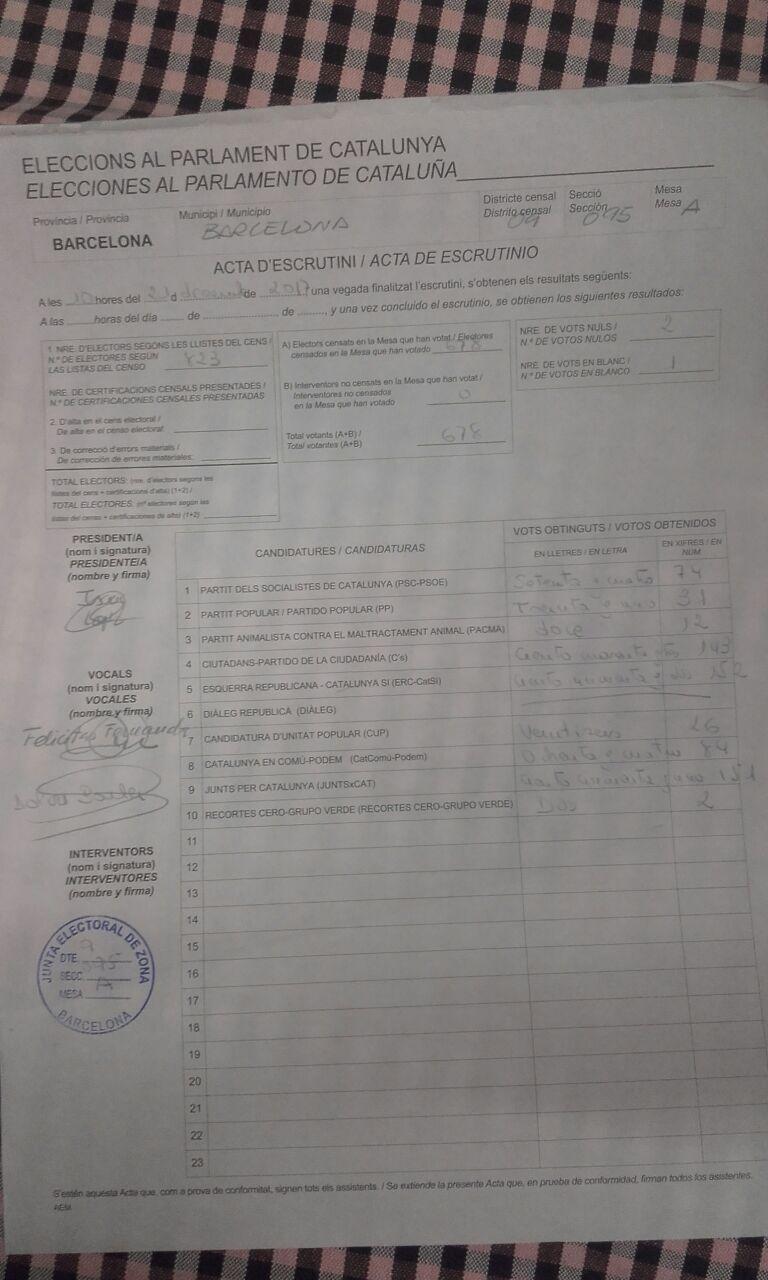 ELECCIONS AL PARLAMENT DE CATALUNYA
ELECCIONES AL PARLAMENTO DE CATALUÑA
Província / Provincia
BARCELONA
Municipi / Municipio
BARCELONA
Districte censal
Distrito censal 09
Secció
Sección 075
Mesa
Mesa A
ACTA D'ESCRUTINI / ACTA DE ESCRUTINIO
A les 10 hores del 21 d de 2017 una vegada finalitzat l'escrutini, s'obtenen els resultats següents:
A las horas del día de de , y una vez concluido el escrutinio, se obtienen los siguientes resultados:
1. NRE. D'ELECTORS SEGONS LES LLISTES DEL CENS /
N.º DE ELECTORES SEGÚN
LAS LISTAS DEL CENSO 823
NRE. DE CERTIFICACIONS CENSALS PRESENTADES /
N.º DE CERTIFICACIONES CENSALES PRESENTADAS
2. D'alta en el cens electoral /
De alta en el censo electoral:
3. De correcció d'errors materials /
De corrección de errores materiales:
TOTAL ELECTORS: (nre. d'electors segons les
llistes del cens + certificacions d'alta) (1+2) /
TOTAL ELECTORES: (nº electores según las
listas del censo + certificaciones de alta) (1+2)
A) Electors censats en la Mesa que han votat / Electores
censados en la Mesa que han votado 678
B) Interventors no censats en la Mesa que han votat /
Interventores no censados
en la Mesa que han votado 0
Total votants (A+B) /
Total votantes (A+B) 678
NRE. DE VOTS NULS /
N.º DE VOTOS NULOS 2
NRE. DE VOTS EN BLANC /
N.º DE VOTOS EN BLANCO 1
PRESIDENT/A
(nom i signatura)
PRESIDENTE/A
(nombre y firma)
VOCALS
(nom i signatura)
VOCALES
(nombre y firma)
INTERVENTORS
(nom i signatura)
INTERVENTORES
(nombre y firma)
JUNTA ELECTORAL DE ZONA
DTE. 9
SECC. 075
MESA A
BARCELONA
CANDIDATURES / CANDIDATURAS
VOTS OBTINGUTS / VOTOS OBTENIDOS
EN LLETRES / EN LETRA
EN XIFRES / EN NÚM
1 PARTIT DELS SOCIALISTES DE CATALUNYA (PSC-PSOE) Setenta y cuatro 74
2 PARTIT POPULAR / PARTIDO POPULAR (PP) Treinta y uno 31
3 PARTIT ANIMALISTA CONTRA EL MALTRACTAMENT ANIMAL (PACMA) doce 12
4 CIUTADANS-PARTIDO DE LA CIUDADANÍA (C's) 143
5 ESQUERRA REPUBLICANA - CATALUNYA SÍ (ERC-CatSí) 152
6 DIÀLEG REPUBLICÀ (DIÀLEG)
7 CANDIDATURA D'UNITAT POPULAR (CUP) 26
8 CATALUNYA EN COMÚ-PODEM (CatComú-Podem) Ochenta y cuatro 84
9 JUNTS PER CATALUNYA (JUNTSxCAT) 151
10 RECORTES CERO-GRUPO VERDE (RECORTES CERO-GRUPO VERDE) Dos 2
11
12
13
14
15
16
17
18
19
20
21
22
23
S'estén aquesta Acta que, com a prova de conformitat, signen tots els assistents. / Se extiende la presente Acta que, en prueba de conformidad, firman todos los asistentes.